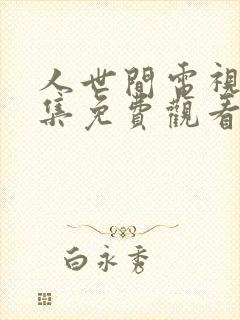 人世間電視
集免費觀看
白永秀